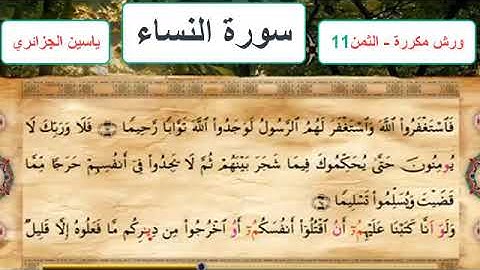 ورش مكررة - الثمن11
سورة النساء
ياسين الجزائري
فَاَسْتَغْفَرُواْ اُللَّهَ وَاسْتَغْفَرَ لَهُمُ اُلرَّسُولُ لَوَجَدُواْ اُللَّهَ تَوَّاباً رَّحِيماً فَلَا وَرَبِّكَ لَا
يُومِنُونَ حَتَّىٰ يُحَكِّمُوكَ فِيمَا شَجَرَ بَيْنَهُمْ ثُمَّ لَا يَجِدُواْ فِي أَنفُسِهِمْ حَرَجاً مِّمَّا
قَضَيْتَ وَيُسَلِّمُواْ تَسْلِيماً
وَلَوَ اَنَّا كَتَبْنَا عَلَيْهِمُ أَنُ اُقْتُلُواْ أَنفُسَكُمُ أَوُ اُخْرُجُواْ مِن دِيٰرِكُم مَّا فَعَلُوهُ إِلَّا قَلِيلٌ